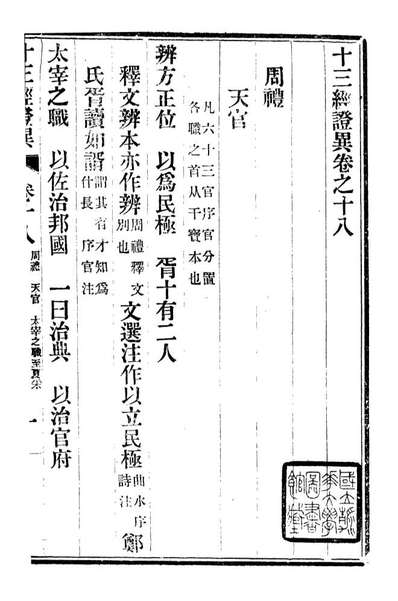 十三經證異卷之十八
周禮
天官
凡六十三官序官分置
各職之首从干寶本也
辨方正位　以爲民極　胥十有二人
釋文辨本亦作辨周禮釋文別也文選注作以立民極曲水序詩注鄭
氏胥讀如諝謂其有才知爲什長　序官注
太宰之職　以佐治邦國　一曰治典　以治官府
十三經證異　卷十八　周禮　天官　太宰之職至　一
國立清
華大學
圖書
館藏